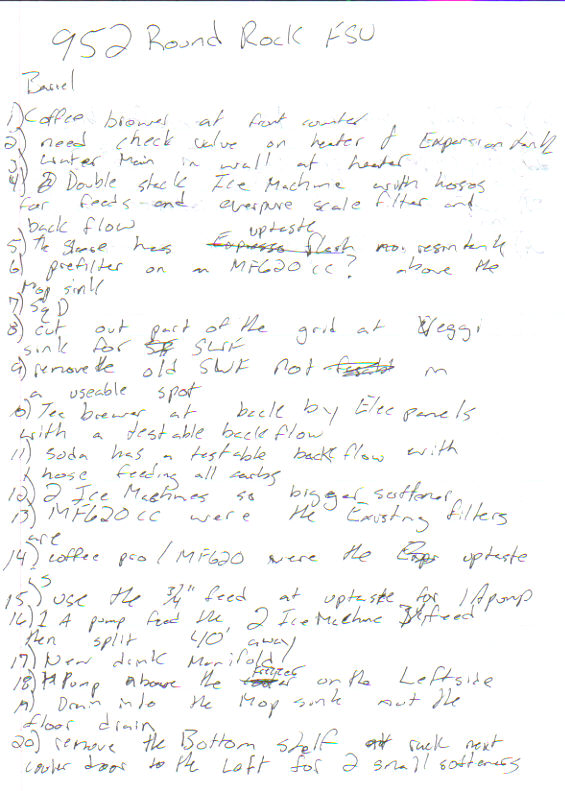 952 Round Rock FSU
Barrel
1) Coffee brewer at front counter
2) need check valve on heater & Expansion tank
3) water Main in wall at heater
4) 2 Double stack Ice Machine with hoses
for feeds and everpure scale filter and
back flow
uptaste
5) the store has Expresso flash no resin tank
6) prefilter on a MF620cc? above the
Mop sink
7) Sq D
8) cut out part of the grid at Veggi
sink for SWF
9) remove the old SWF not in
a useable spot
10) Tea brewer at back by Elec panels
with a testable backflow
11) soda has a testable back flow with
1 hose feeding all carbs
12) 2 Ice Machines so bigger softener
13) MF620cc were the Existing filters
are
14) coffee pro / MF620 were the uptaste
is
15) use the 3/4" feed at uptaste for 1 A pump
16) 1 A pump feed the 2 Ice Machine feed
then split 40' away
17) New drink Manifold
Freezer
18) Pump above the on the Left side
19) Drain into the Mop sink not the
floor drain
20) remove the Bottom shelf rack next
cooler door to the Left for 2 small softeners